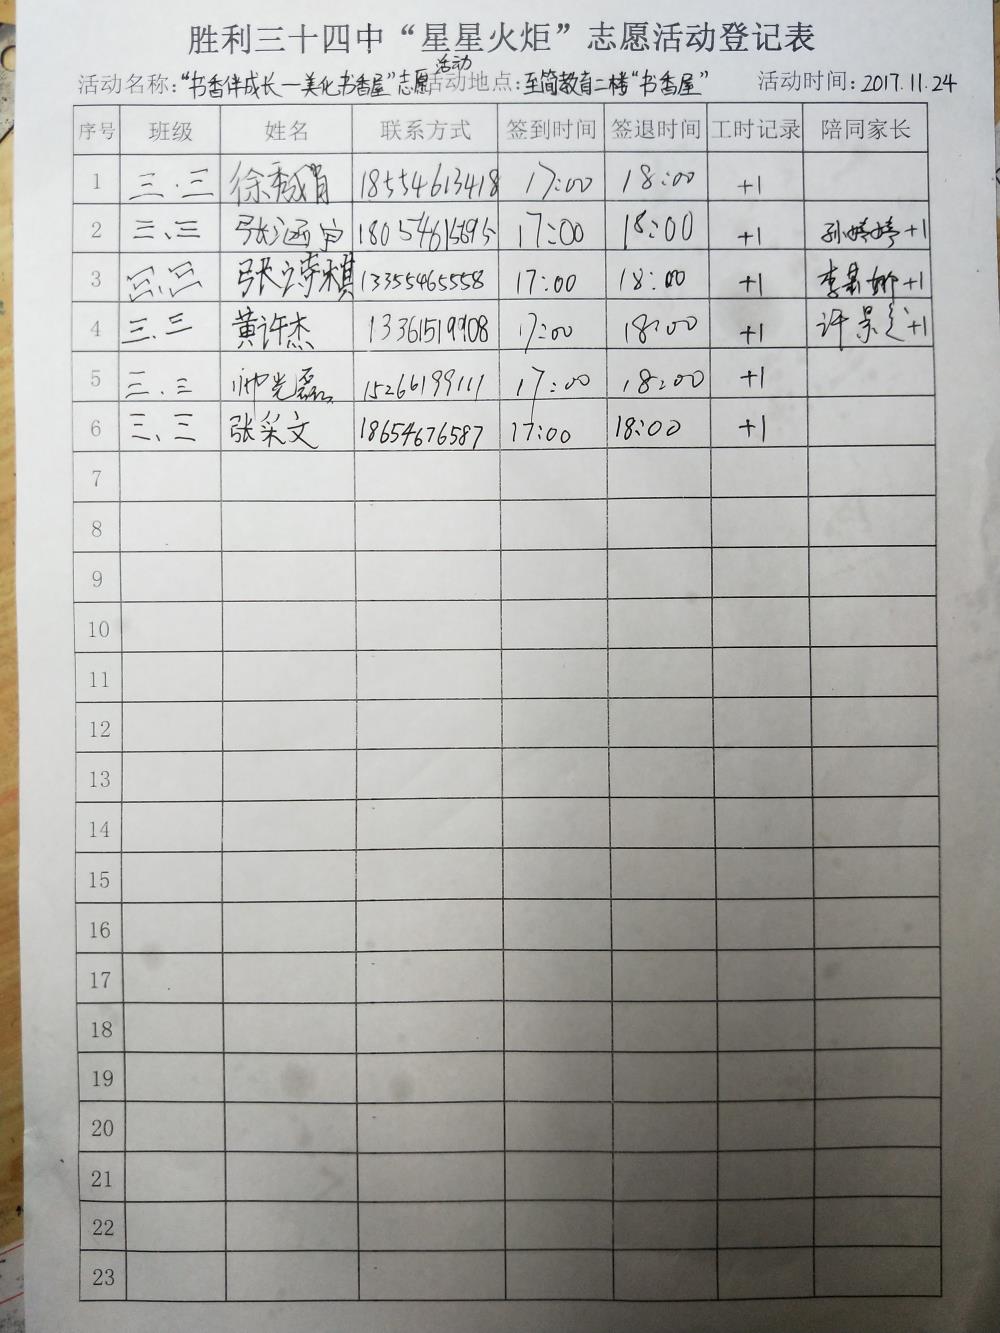 胜利三十四中“星星火炬”志愿活动登记表
活动名称:“书香伴成长—美化书香屋”志愿活动 活动地点:至简教育二楼“书香屋” 活动时间:2017.11.24
序号 班级 姓名 联系方式 签到时间 签退时间 工时记录 陪同家长
1 三.三 徐 18554613418 17:00 18:00 +1
2 三、三 张涵宇 18054615695 17:00 18:00 +1 孙婷婷+1
3 三、三 张诗棋 13355465558 17:00 18:00 +1 李 娜+1
4 三.三 黄许杰 13361519908 17:00 18:00 +1 许 +1
5 三.三 帅光磊 15266199111 17:00 18:00 +1
6 三、三 张采文 18654676587 17:00 18:00 +1
7
8
9
10
11
12
13
14
15
16
17
18
19
20
21
22
23